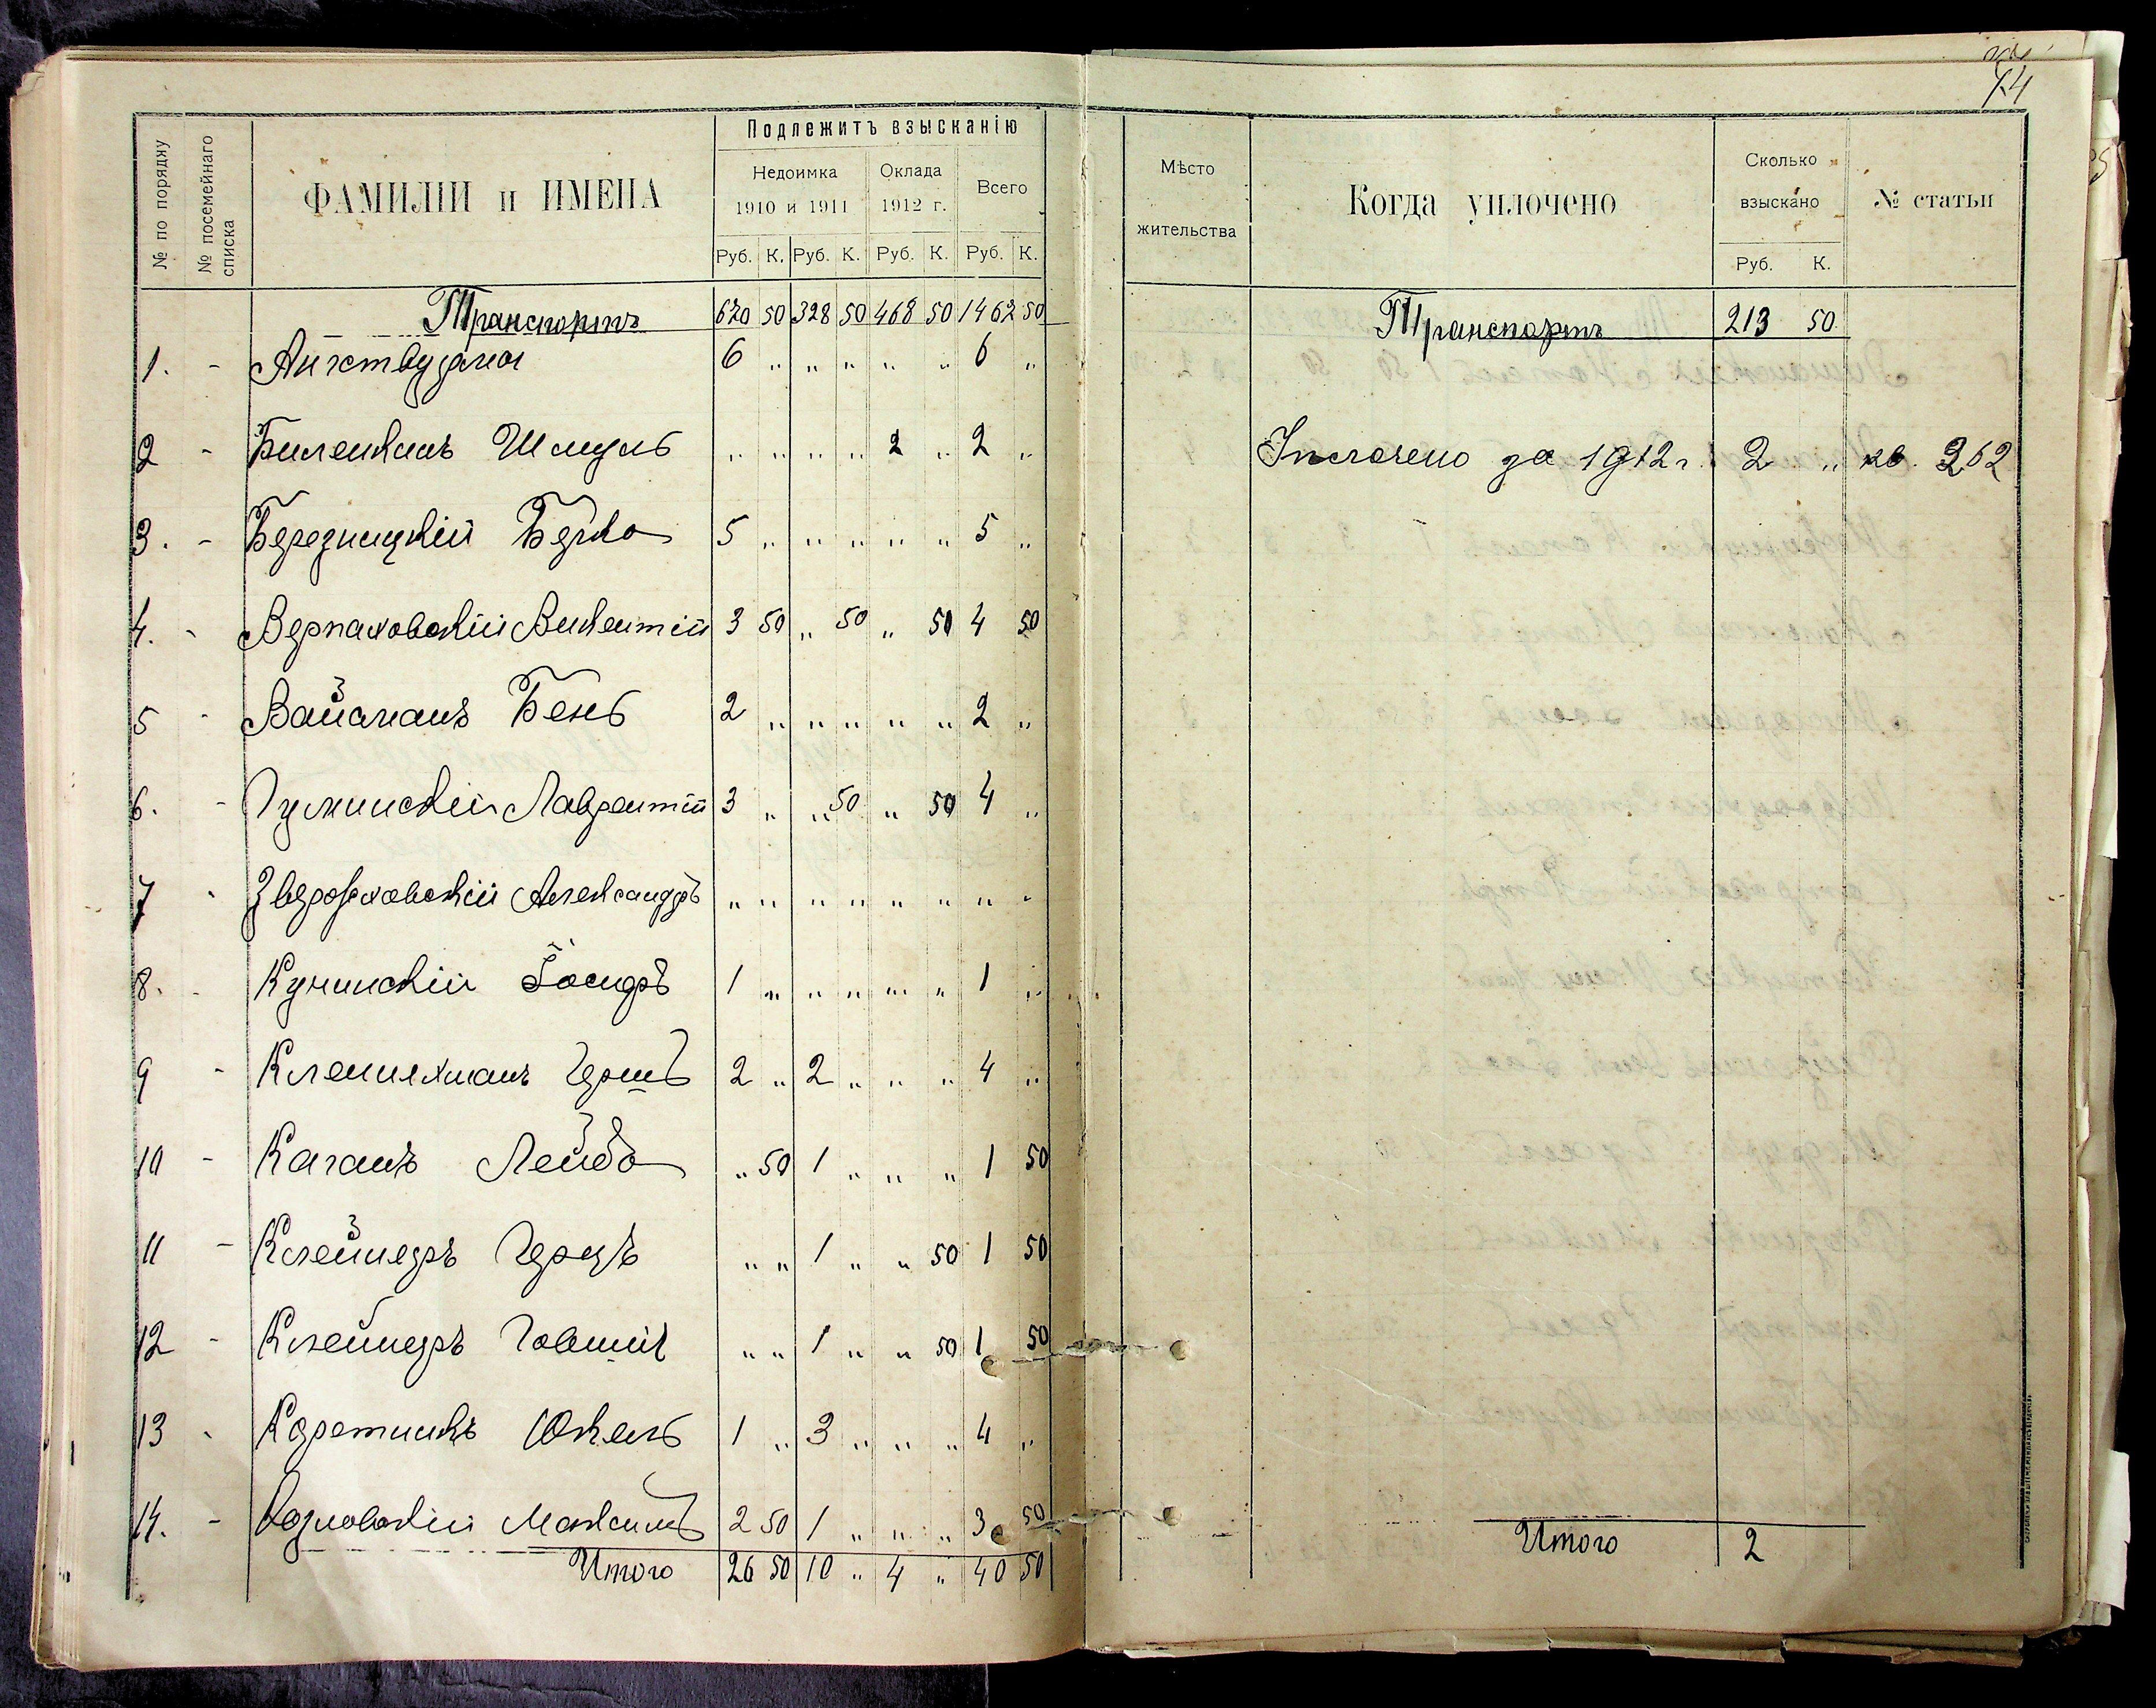 44
Подлежитъ взысканію
№ по порядку
№ посемейнаго списка
ФАМИЛІИ и ИМЕНА
Недоимка 1910 и 1911
Оклада 1912 г.
Всего
Руб. К. Руб. К. Руб. К. Руб. К.
Мѣсто жительства
Когда уплочено
Сколько взыскано
Руб. К.
№ статьи
Транспортъ 620 50 328 50 468 50 1462 50
Транспортъ 213 50
1. - 6 „ „ „ „ „ 6 „
2 - Биленкинъ Шмуль „ „ „ „ 2 „ 2 „
Уплочено за 1912 г. 2 „ кв. 262
3. - Березницкій Берко 5 „ „ „ „ „ 5 „
4. - Верпаховскій Викентій 3 50 „ 50 „ 50 4 50
5 - Вайсманъ Бень 2 „ „ „ „ „ 2 „
6. - Гулинскій Лаврентій 3 „ „ 50 „ 50 4 „
7 - Александръ „ „ „ „ „ „ „ „
8. - Кучинскій 1 „ „ „ „ „ 1 „
9 - Гершъ 2 „ 2 „ „ „ 4 „
10 - Каганъ Лейба „ 50 1 „ „ „ 1 50
11 - Клейнеръ Герцъ „ „ 1 „ „ 50 1 50
12 - Клейнеръ Говшій „ „ 1 „ „ 50 1 50
13 - Коретникъ Юкель 1 „ 3 „ „ „ 4 „
14. - Козловскій Максимъ 2 50 1 „ „ „ 3 50
Итого 26 50 10 „ 4 „ 40 50
Итого 2